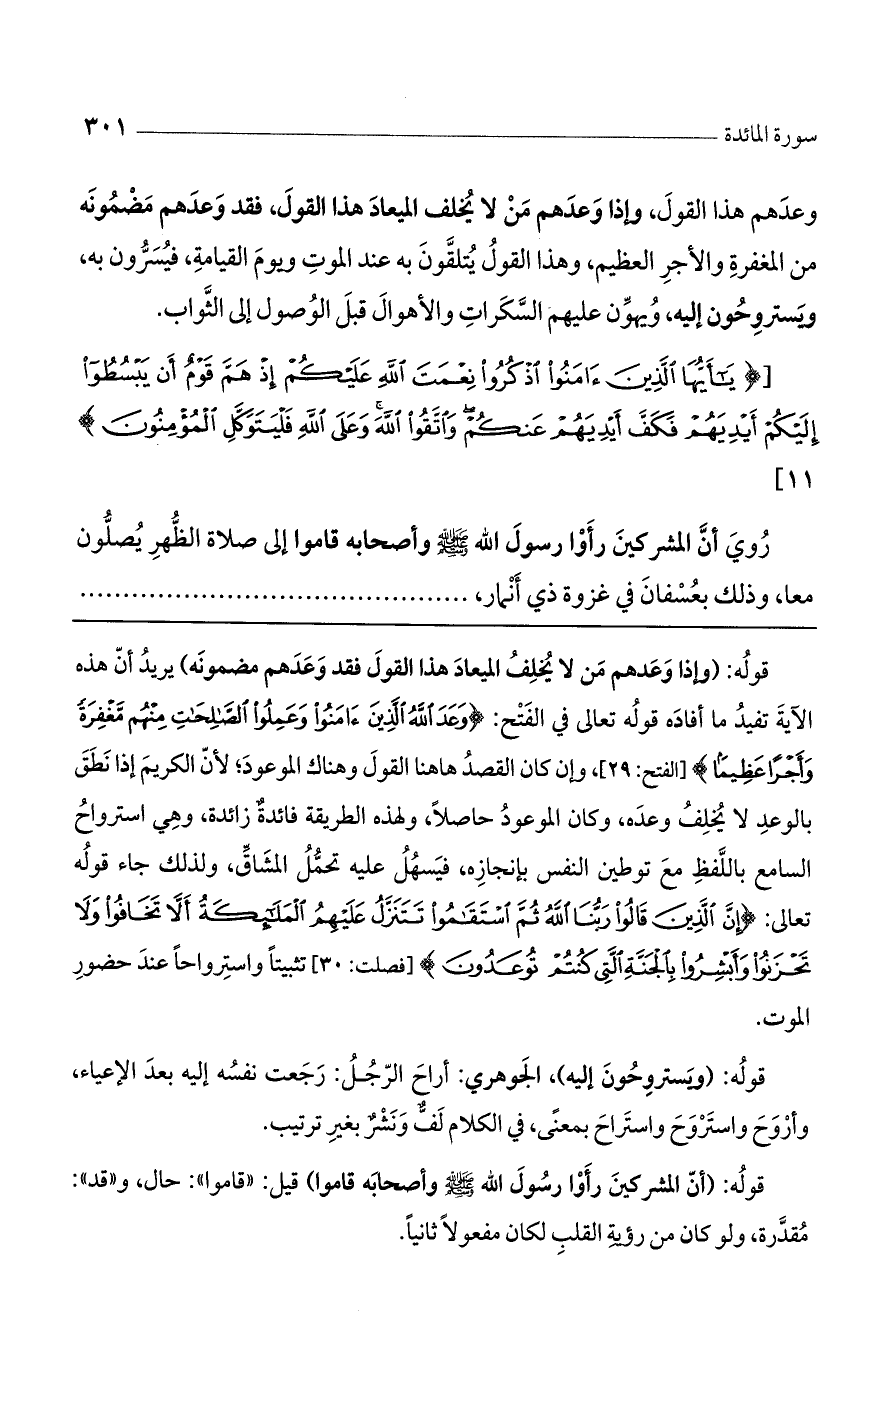 سورة المائدة ٣٠١
وعدَهم هذا القولَ، وإذا وَعدَهم مَنْ لا يُخلف الميعادَ هذا القولَ، فقد وَعدَهم مَضْمُونَه
من المغفرةِ والأجرِ العظيم، وهذا القولُ يُتلقَّونَ به عند الموتِ ويومَ القيامةِ، فيُسَرُّون به،
ويَستروِحُون إليه، ويُهوِّن عليهم السَّكَراتِ والأهوالَ قبلَ الوُصول إلى الثَّواب.
[﴿ يَٰٓأَيُّهَا ٱلَّذِينَ ءَامَنُوا۟ ٱذْكُرُوا۟ نِعْمَتَ ٱللَّهِ عَلَيْكُمْ إِذْ هَمَّ قَوْمٌ أَن يَبْسُطُوٓا۟
إِلَيْكُمْ أَيْدِيَهُمْ فَكَفَّ أَيْدِيَهُمْ عَنكُمْ ۖ وَٱتَّقُوا۟ ٱللَّهَ ۚ وَعَلَى ٱللَّهِ فَلْيَتَوَكَّلِ ٱلْمُؤْمِنُونَ ﴾
١١]
رُويَ أنَّ المشركينَ رأَوْا رسولَ الله ﷺ وأصحابه قاموا إلى صلاة الظُّهرِ يُصلُّون
معا، وذلك بعُسْفانَ في غزوة ذي أَنْمار، ............................................
قولُه: (وإذا وَعَدهم مَن لا يُخلِفُ الميعادَ هذا القولَ فقد وَعَدَهم مضمونَه) يريدُ أنّ هذه
الآيةَ تفيدُ ما أفادَه قولُه تعالى في الفَتْح: ﴿وَعَدَ ٱللَّهُ ٱلَّذِينَ ءَامَنُوا۟ وَعَمِلُوا۟ ٱلصَّٰلِحَٰتِ مِنْهُم مَّغْفِرَةً
وَأَجْرًا عَظِيمًۢا ﴾ [الفتح: ٢٩]، وإن كان القصدُ هاهنا القولَ وهناك الموعودَ؛ لأنّ الكريمَ إذا نَطَقَ
بالوعدِ لا يُخلِفُ وعدَه، وكان الموعودُ حاصلاً، ولهذه الطريقة فائدةٌ زائدة، وهِي استرواحُ
السامع باللَّفظِ معَ توطين النفس بإنجازِه، فيَسهُلُ عليه تحمُّلُ المشَاقِّ، ولذلك جاء قولُه
تعالى: ﴿إِنَّ ٱلَّذِينَ قَالُوا۟ رَبُّنَا ٱللَّهُ ثُمَّ ٱسْتَقَٰمُوا۟ تَتَنَزَّلُ عَلَيْهِمُ ٱلْمَلَٰٓئِكَةُ أَلَّا تَخَافُوا۟ وَلَا
تَحْزَنُوا۟ وَأَبْشِرُوا۟ بِٱلْجَنَّةِ ٱلَّتِى كُنتُمْ تُوعَدُونَ ﴾ [فصلت: ٣٠] تثبيتاً واسترواحاً عندَ حضورِ
الموت.
قولُه: (ويَستروِحُونَ إليه)، الجَوهري: أراحَ الرّجُلُ: رَجَعت نفسُه إليه بعدَ الإعياء،
وأرْوَحَ واستَرْوَحَ واستَراحَ بمعنًى، في الكلام لَفٌّ وَنَشْرٌ بغيرِ ترتيب.
قولُه: (أنّ المشركينَ رأَوْا رسُولَ الله ﷺ وأصحابَه قاموا) قيل: «قاموا»: حال، و«قد»:
مُقدَّرة، ولو كان من رؤيةِ القلبِ لكان مفعولاً ثانياً.